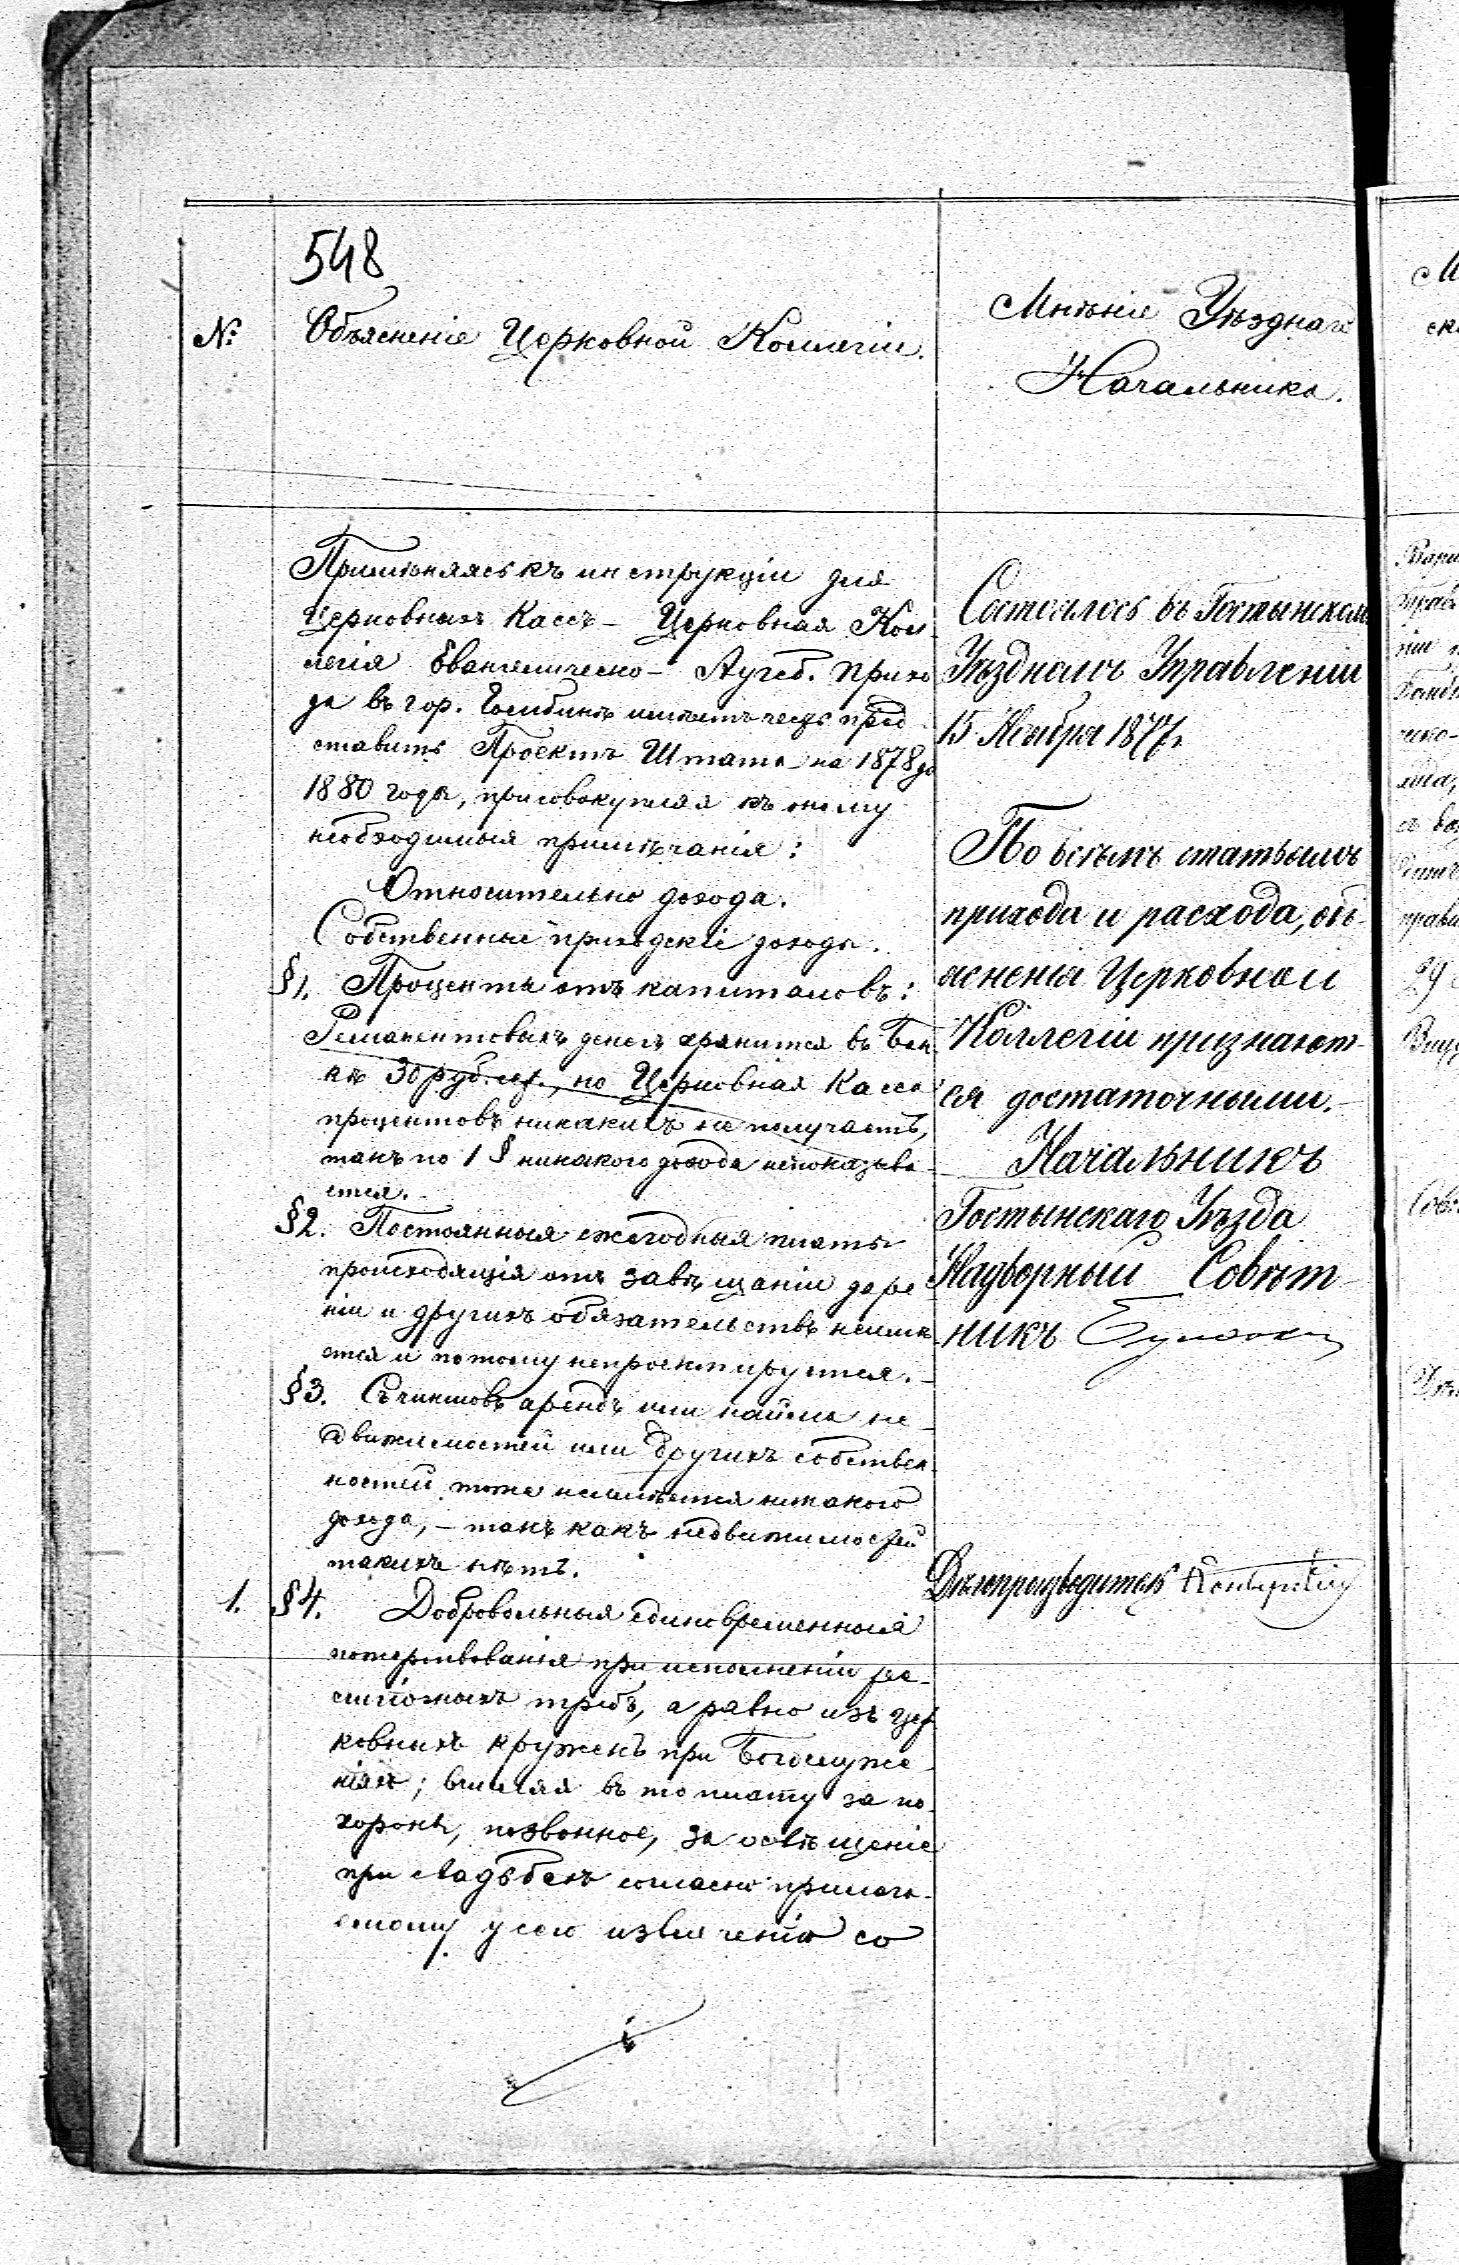 548
№
Объясненіе Церковной Коллегіи.
Мнѣніе Уѣзднаго
Начальника.
Примѣняясь къ инструкціи для
Церковныхъ Кассъ - Церковная Кол-
легія Евангелическо - Аугсб. прихо
да въ гор. Гомбинѣ имѣетъ честь пред-
ставить Проектъ Штата на 1878 до
1880 года, присовокупляя къ оному
необходимыя примѣчанія:
Относительно дохода.
Собственные приходскіе доходы.
§1. Проценты отъ капиталовъ:
Ремаментовыхъ денегъ хранится въ Бан-
кѣ 30 руб. сер., но Церковная Касса
процентовъ никакихъ не получаетъ,
такъ по 1 § никакого дохода непоказыва-
ется.
§2. Постоянныя ежегодныя платы
происходящія отъ завѣщаній даре
ній и другихъ обязательствъ неимѣ-
ется и потому непроектируется. -
§3. Съ чиншовъ арендъ или найма не-
движимостей или другихъ собствен-
ностей тоже неимѣется никакого
дохода, - такъ какъ недвижимостей
такихъ нѣтъ.
1. §4. Добровольныя единовременныя
пожертвованія при исполненіи ре-
лигіозныхъ требъ, а равно изъ цер
ковныхъ кружекъ при Богослуже-
ніяхъ; включая въ то плату за по-
хороны, позвонное, за освѣщеніе
при свадьбахъ согласно прилага-
емому у сего извлеченію со
Состоялось въ Гостынскомъ
Уѣздномъ Управленіи
15 Ноября 1877 г.
По всѣмъ статьямъ
прихода и расхода, объ-
ясненія Церковной
Коллегіи признают-
ся достаточными. -
Начальникъ
Гостынскаго Уѣзда
Надворный Совѣт-
никъ
Дѣлопроизводитель